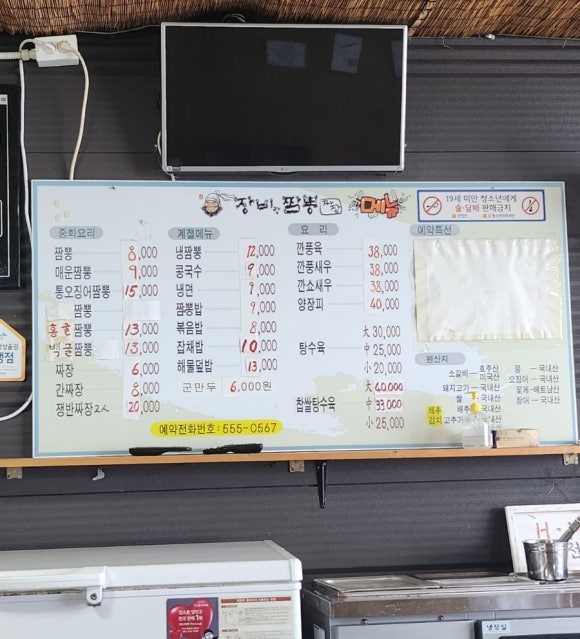 장비랑 짬뽕 메뉴
19세 미만 청소년에게
술·담배 판매금지
중화요리
짬뽕 8,000
매운짬뽕 9,000
통오징어짬뽕 15,000
짬뽕
홍굴짬뽕 13,000
백굴짬뽕 13,000
짜장 6,000
간짜장 8,000
쟁반짜장2人 20,000
계절메뉴
냉짬뽕 12,000
콩국수 9,000
냉면 9,000
짬뽕밥 9,000
볶음밥 8,000
잡채밥 10,000
해물덮밥 13,000
군만두 6,000원
요 리
깐풍육 38,000
깐풍새우 38,000
깐쇼새우 38,000
양장피 40,000
大 30,000
탕수육 中 25,000
小 20,000
大 40,000
찹쌀탕수육 中 33,000
小 25,000
예약특선
원산지
소갈비 호주산 미국산
돼지고기 국내산
쌀 국내산
배추 배추 국내산
김치 고추가
콩 국내산
오징어 국내산
꽃게 베트남산
장어 국내산
예약전화번호: 555-0567
냉장실